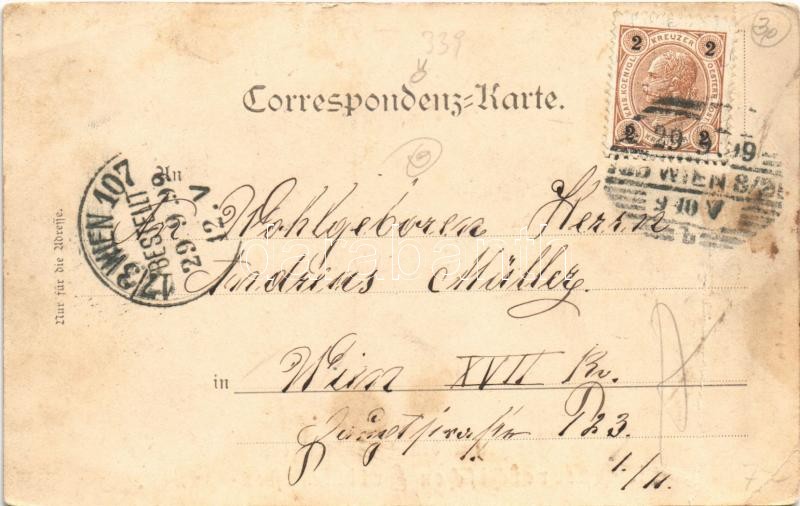 339
30
Correspondenz-Karte.
2 KREUZER 2
KAIS. KOENIGL. OESTERR. POST
2 2
29 9 99
WIEN 8/2
9 10 V
17/3 WIEN 107
BESTELLT
29 9 99
12. V
Nur für die Adresse.
An
Wohlgeboren Herrn
Andreas Müller
in Wien XVII Br.
Hauptstrasse 123.
1./11.